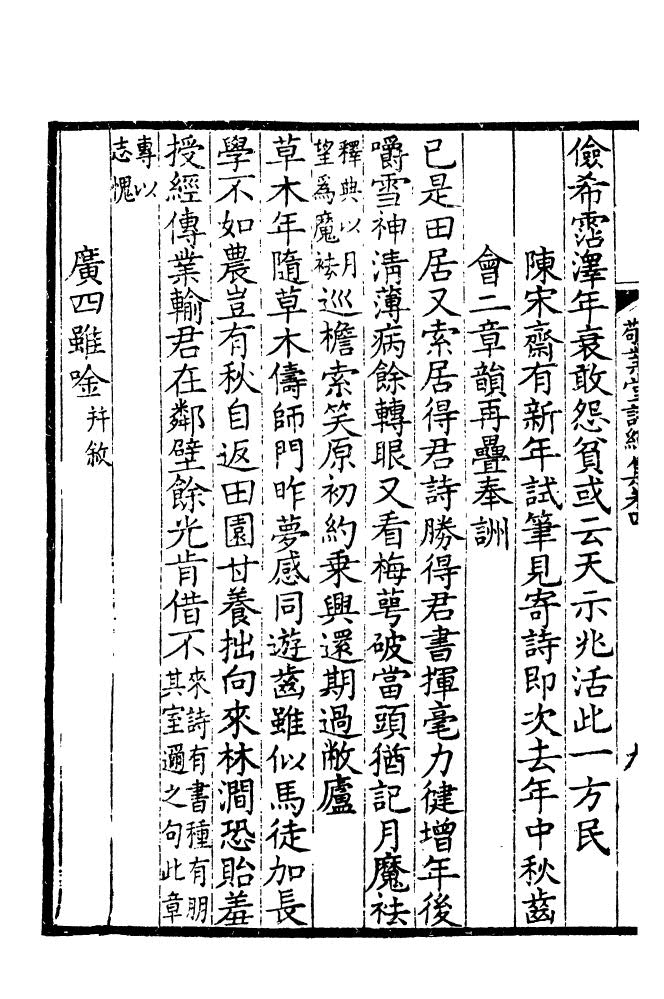 儉希霑澤年衰敢怨貧或云天示兆活此一方民
陳宋齋有新年試筆見寄詩即次去年中秋齒
會二章韻再疊奉詶
已是田居又索居得君詩勝得君書揮毫力健增年後
嚼雪神清薄病餘轉眼又看梅萼破當頭猶記月魔袪
釋典以月
望爲魔袪
巡檐索笑原初約乗興還期過敝廬
草木年隨草木儔師門昨夢感同遊齒雖似馬徒加長
學不如農豈有秋自返田園甘養拙向來林澗恐貽羞
授經傳業輸君在鄰壁餘光肯借不
來詩有書種有朋
其室邇之句此章
專以
志愧
廣四雖唫
并敘
敬業堂詩續集卷